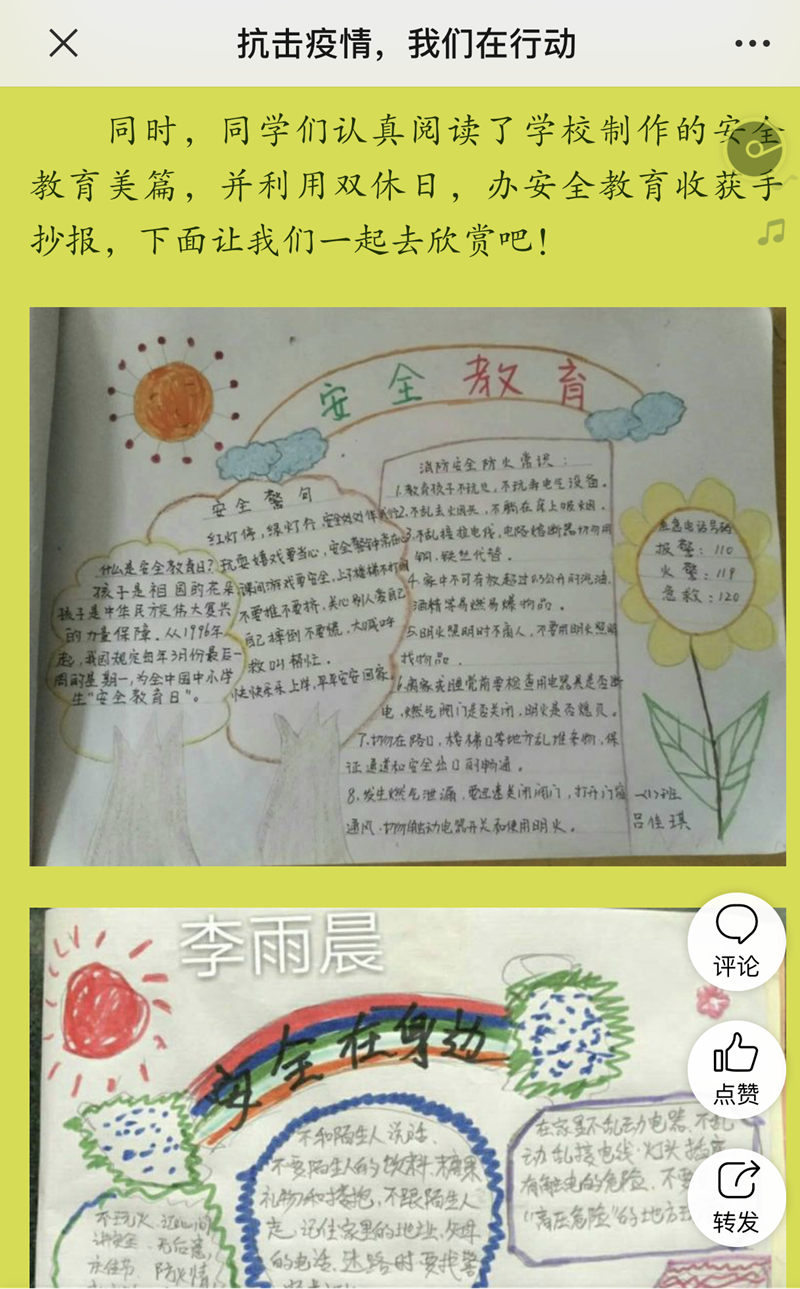 抗击疫情，我们在行动
同时，同学们认真阅读了学校制作的安全
教育美篇，并利用双休日，办安全教育收获手
抄报，下面让我们一起去欣赏吧！
安全教育
安全警句
红灯停，绿灯行，安全时时伴我行
玩耍嬉戏要当心，安全警钟常在心
课间游戏要安全，上下楼梯不打闹
不要推不要挤，关心别人爱自己
自己摔倒不要慌，大喊呼
救叫帮忙．
快快乐乐上学，平平安安回家．
什么是安全教育日？
孩子是祖国的花朵
孩子是中华民族伟大复兴
的力量保障．从1996年
起，我国规定每年3月份最后一
周的星期一，为全中国中小学
生“安全教育日”。
消防安全防火常识：
1.教育孩子不玩火，不玩弄电气设备。
2.不乱丢火烟头，不躺在床上吸烟．
3.不乱接拉电线，电路熔断器切勿用
铜．铁丝代替．
4.家中不可存放超过0.5公升的汽油．
酒精等易燃易爆物品．
5.明火照明时不离人，不要用明火照明
找物品．
6.离家或睡觉前要检查用电器具是否断
电，燃气阀门是否关闭，明火是否熄灭．
7.切勿在路口、楼梯口等地方乱堆杂物，保
证通道和安全出口的畅通。
8.发生燃气泄漏，要迅速关闭阀门，打开门窗
通风．切勿触动电器开关和使用明火。
应急电话号码
报警：110
火警：119
急救：120
一(1)班
吕佳琪
李雨晨
安全在身边
不和陌生人说话、
不要陌生人的饮料．糖果
礼物和搂抱，不跟陌生人
走，记住家里的地址，父母
的电话、迷路时要找警
在家里不乱动电器、不乱
动乱接电线．灯头插座
有触电的危险、不要
“高压危险”的地方玩
不玩火
讲安全
评论
点赞
转发